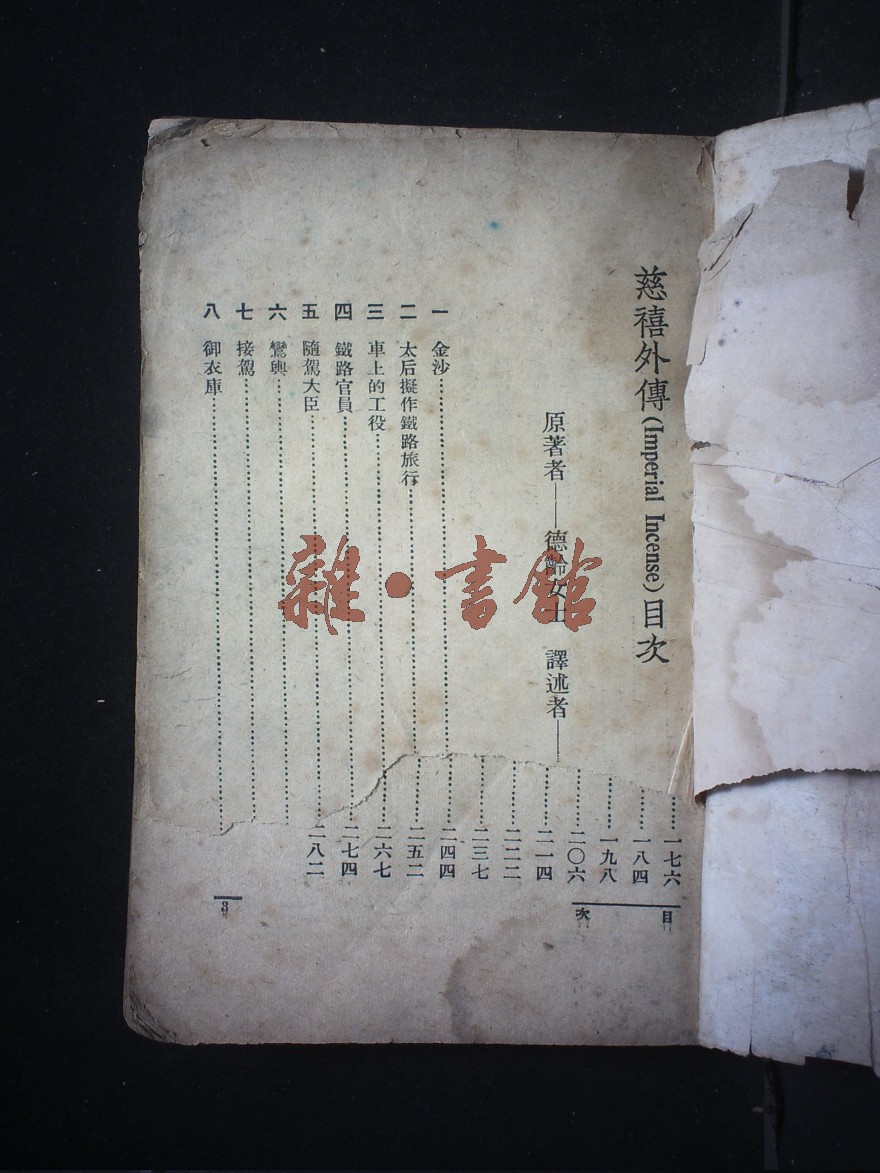 慈禧外傳(Imperial Incense)目次
原著者——德齡女士 譯述者——
一 金沙
二 太后擬作鐵路旅行
三 車上的工役
四 鐵路官員
五 隨駕大臣
六 鸞輿
七 接駕
八 御衣庫
一七六
一八四
一九八
二〇六
二一四
二二二
二三七
二四四
二五二
二六七
二七四
二八二
目次
3
雜·書館